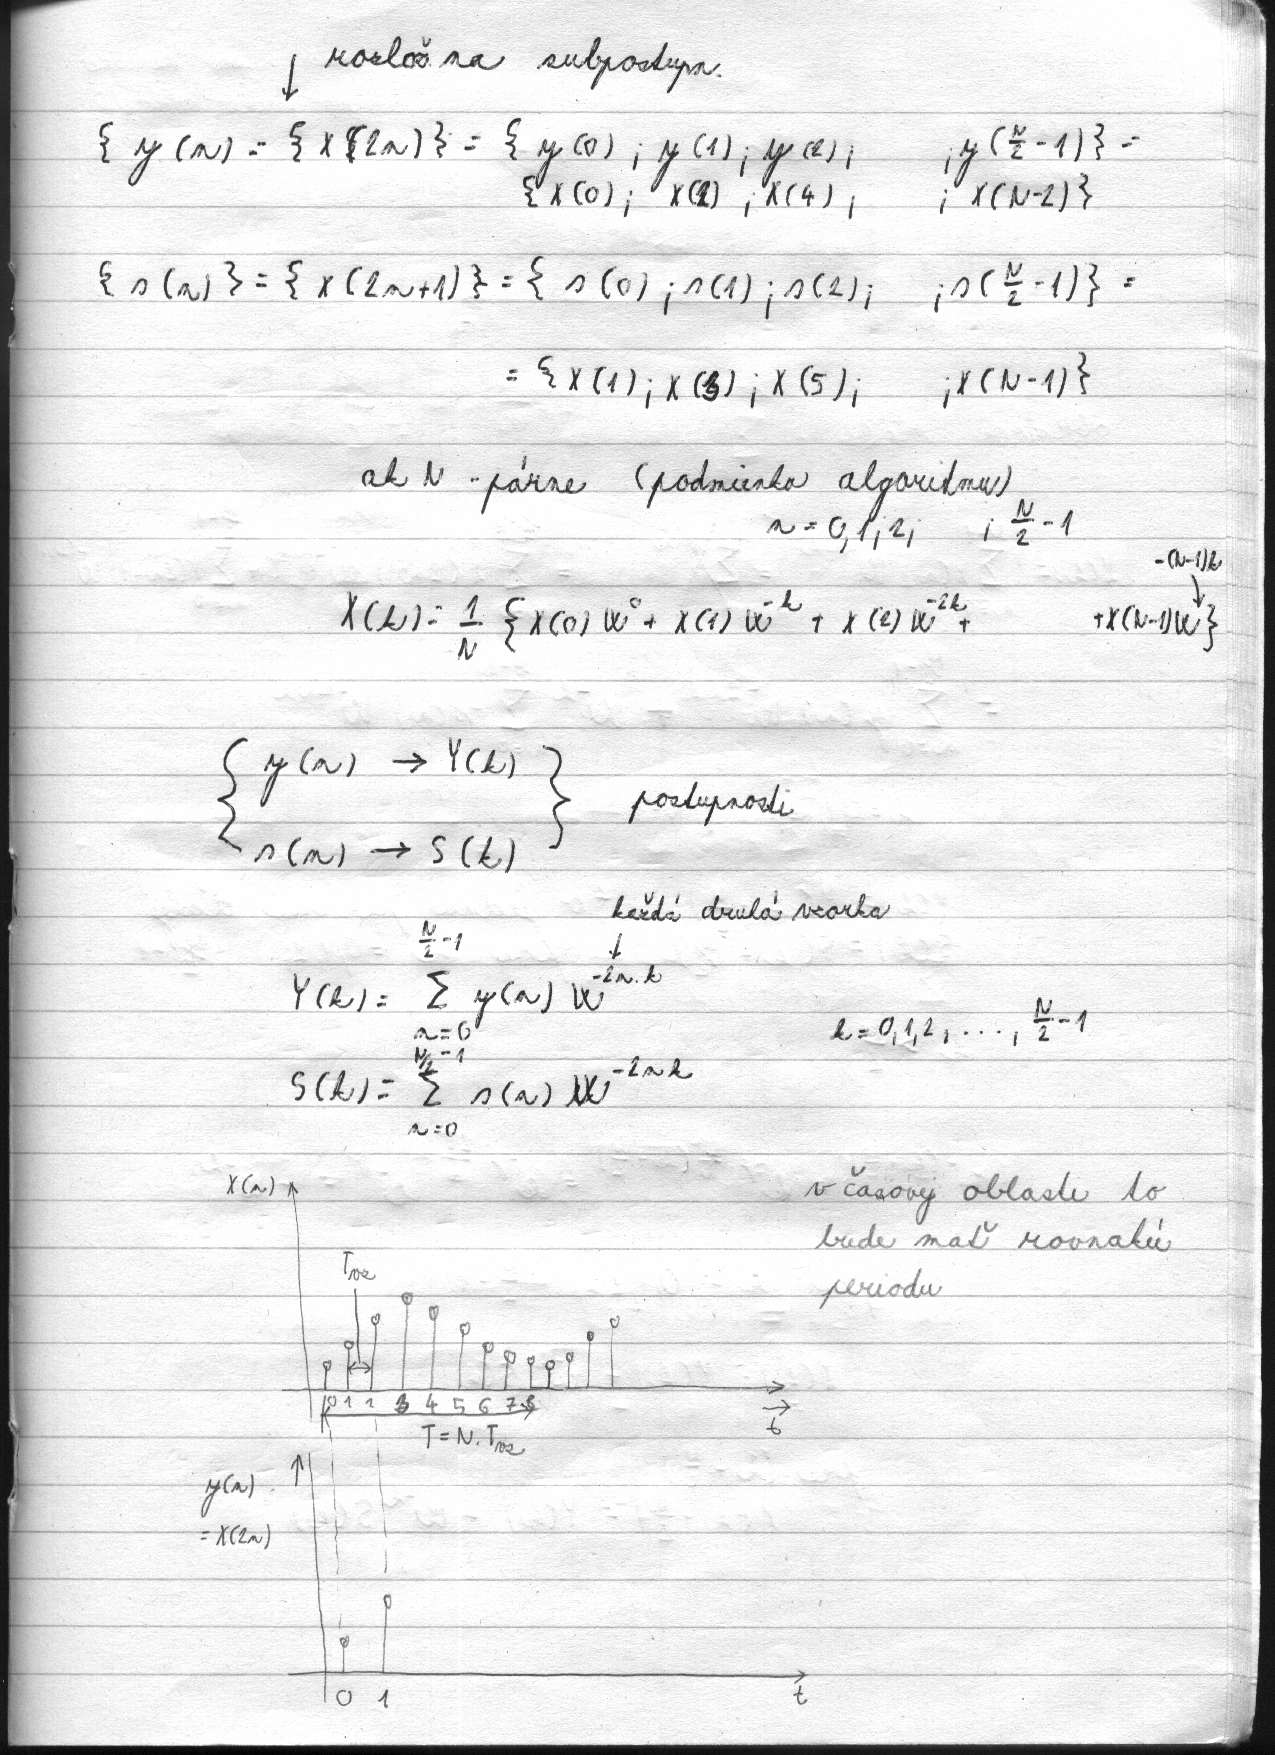 rozlož. na subpostupn.
{ y(n) = { x(2n) } = { y(0) ; y(1) ; y(2) ;      ; y(N/2 - 1) } =
{ x(0) ; x(2) ; x(4) ;      ; x(N-2) }
{ s(n) } = { x(2n+1) } = { s(0) ; s(1) ; s(2) ;      ; s(N/2 - 1) } =
= { x(1) ; x(3) ; x(5) ;      ; x(N-1) }
ak N - párne (podmienka algoritmu)
n = 0, 1, 2,      ; N/2 - 1
X(k) = 1/N { x(0) W^0 + x(1) W^-k + x(2) W^-2k +      + x(N-1) W^-(N-1)k }
{ y(n) → Y(k) }
postupnosti
{ s(n) → S(k) }
každá druhá vzorka
Y(k) = Σ_{n=0}^{N/2 - 1} y(n) W^-2n.k
k = 0, 1, 2, ..., N/2 - 1
S(k) = Σ_{n=0}^{N/2 - 1} s(n) W^-2nk
x(n)
v časovej oblasti to
bude mať rovnakú
periodu
Tvz
0 1 2 3 4 5 6 7 8
t
T = N. Tvz
y(n)
= x(2n)
0 1
t